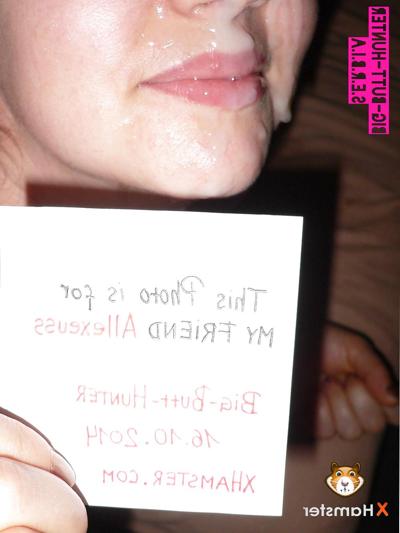 BIG-BUTT-HUNTER
S.E.R.B.I.A.
This Photo is for
MY FRIEND Allexeuss
BIG-BUTT-HUNTER
16.10.2014
XHAMSTER.COM
XHamster